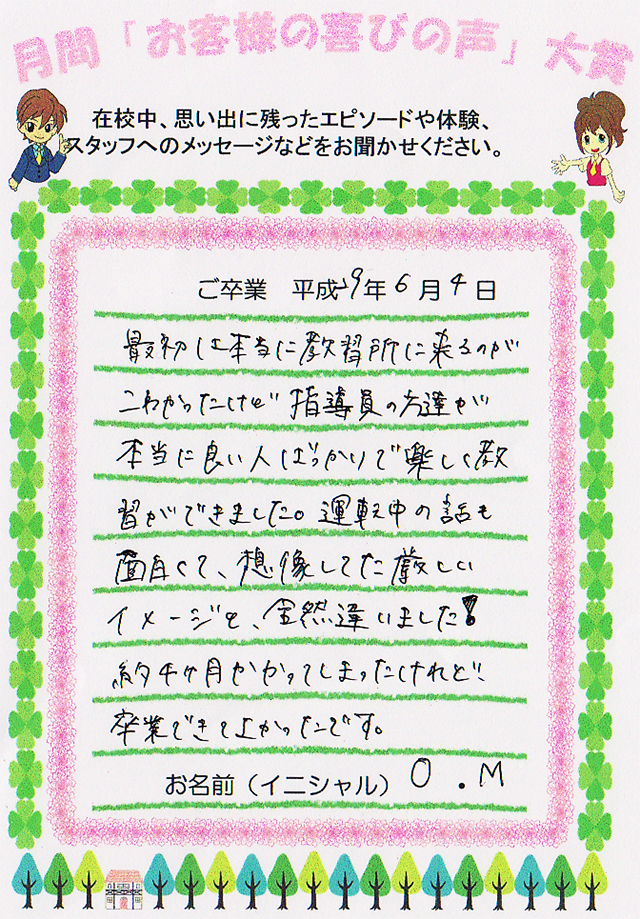 月間「お客様の喜びの声」大賞
在校中、思い出に残ったエピソードや体験、
スタッフへのメッセージなどをお聞かせください。
ご卒業 平成29年6月4日
最初は本当に教習所に来るのが
こわかったけど指導員の方達が
本当に良い人ばっかりで楽しく教
習ができました。運転中の話も
面白くて、想像してた厳しい
イメージと、全然違いました!
約4ヶ月かかってしまったけれど
卒業できてよかったです。
お名前(イニシャル) O.M